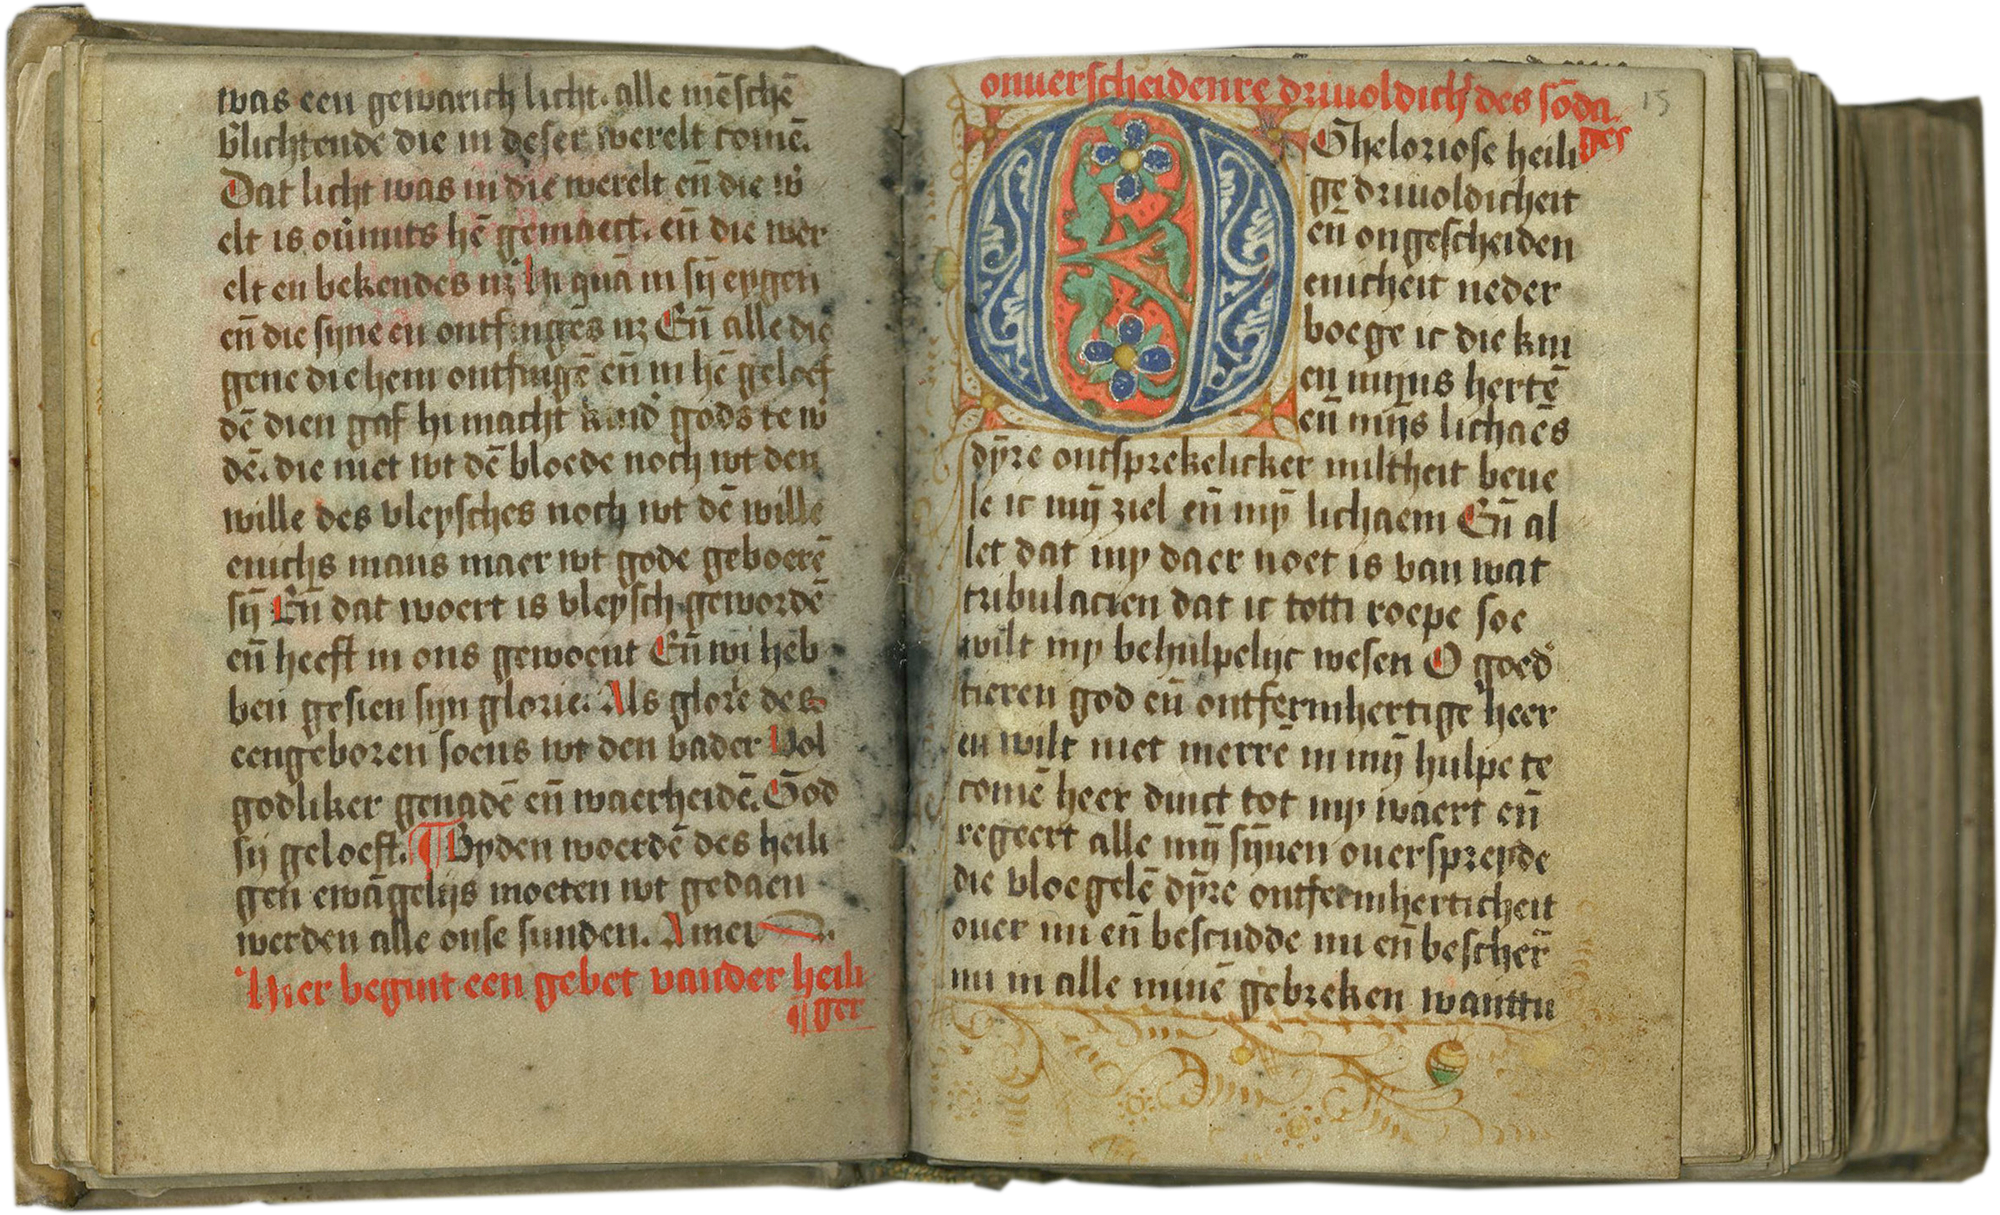 was een gewarich licht. alle mēschē
v̄lichtende die in deser werelt comē.
Dat licht was in die werelt en̄ die w̄
elt is ou̇mits hē gemaect. en̄ die wer
elt en bekendes nʒ In quā in sij̄ eygen
en̄ die syne en ontfingēs nʒ En̄ alle die
gene die hem ontfingē en̄ in hē geloef
dē dien gaf hi macht kind̛ gods te w̄
dē. die niet wt dē bloede noch wt den
wille des vleysches noch wt dē wille
enichs mans maer wt gode geboerē
sij̄ En̄ dat woert is vleysch gewordē
en̄ heeft in ons gewoent En̄ wi heb
ben gesien sijn glorie. Als glorē des
eengeboren soens wt den vader Vol
godliker genadē en̄ waerheidē. God
sij geloeft. ¶ Byden woerdē des heili
gen ewāgelijs moeten wt gedaen
werden alle onse sunden. Amen.
Hier begint een gebet vander heili
¶ger
onuerscheidenre driuoldich̛ des sōda
ges
15
O Gheloriose heili
ge driuoldicheit
en̄ ongescheiden
enicheit neder
boege ic die kni
en mijns hertē
en̄ mijs lichaēs
dȳre ontsprekelicker miltheit beue
le ic mij̄ ziel en̄ mȳ lichaem En̄ al
let dat my daer noet is van wat
tribulacien dat ic totti roepe soe
wilt my behulpelijc wesen O goed̛
tieren god en̄ ontfermhertige heer
en wilt niet merrē in mij̄ hulpe te
comē heer dinct tot my waert en̄
regeert alle mij̄ sȳnen ouerspreyde
die vloegelē dȳre ontfermherticheit
ouer mi en̄ bescudde mi en̄ bescher̄
mi in alle minē gebreken wanttu